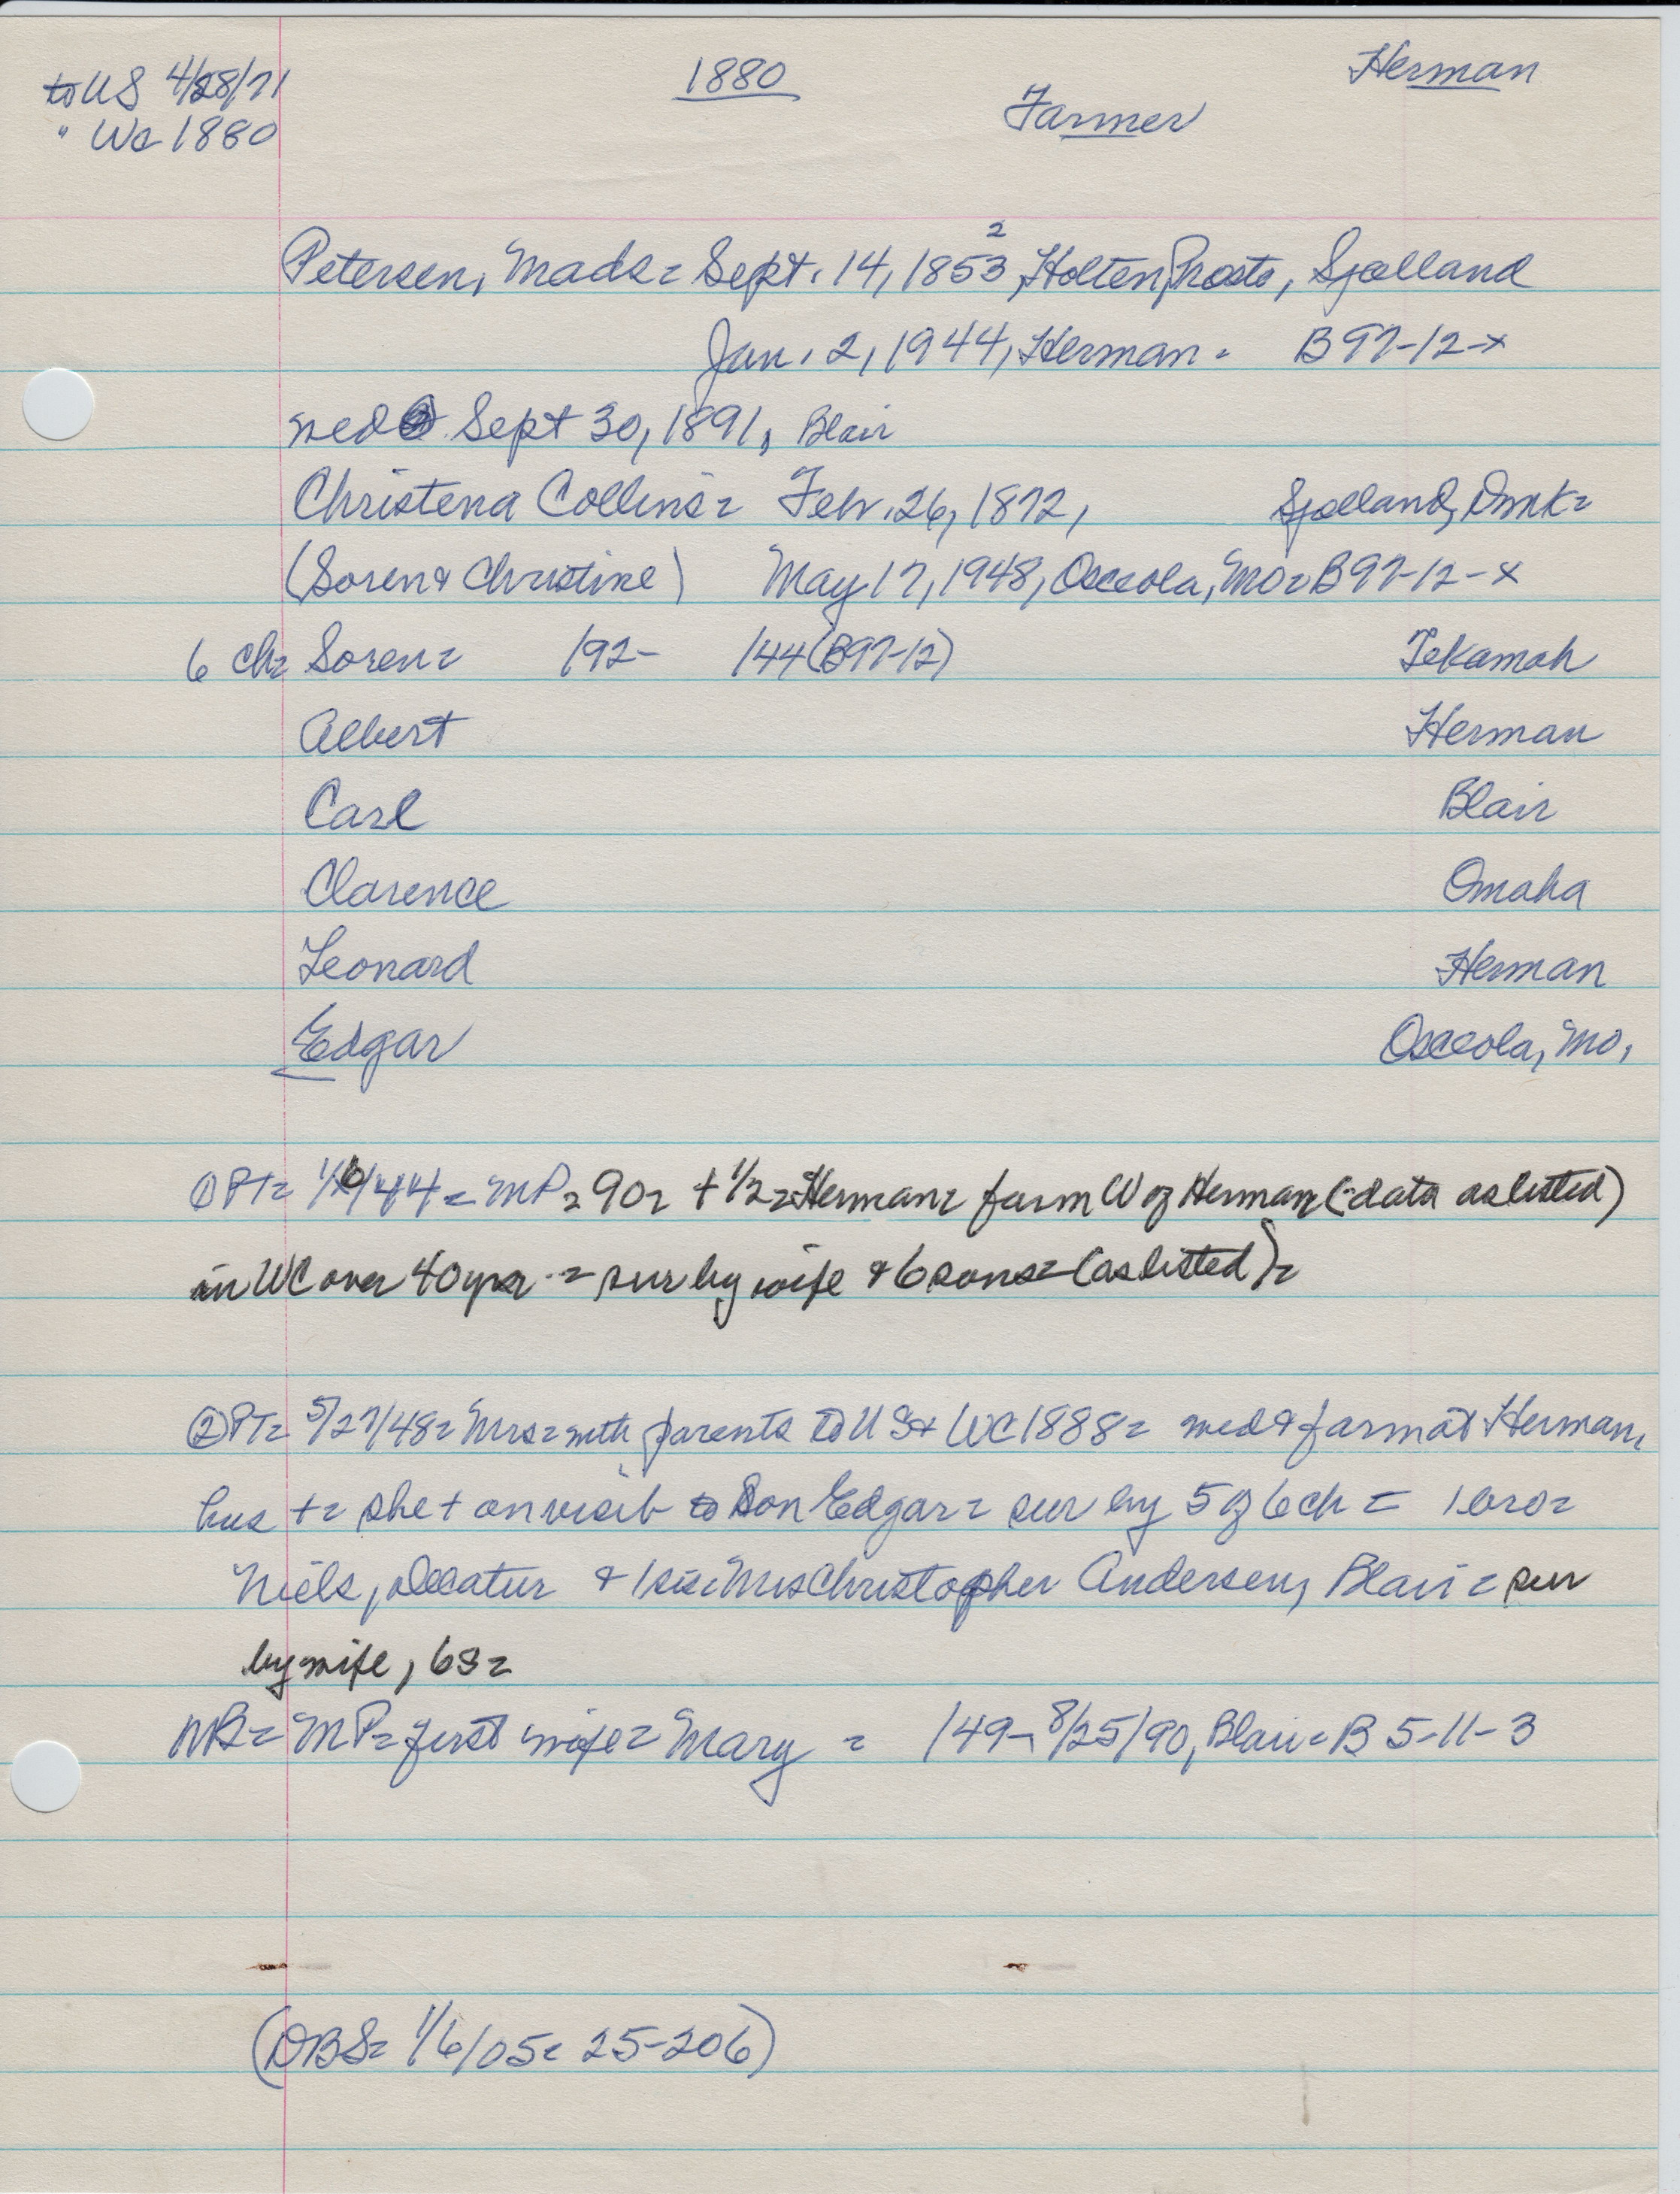 to US 4/28/71
" Wc 1880
1880
Farmer
Herman
2
Petersen, Mads = Sept. 14, 1853, Holten, Prosto, Sjolland
Jan. 2, 1944, Herman = B97-12-x
med Sept 30, 1891, Blair
Christena Collins = Febr. 26, 1872, Sjolland, Dmk =
(Soren & Christine) May 17, 1948, Osceola, Mo = B97-12-x
6 ch = Soren = 192- 144 (B97-12) Tekamah
Albert Herman
Carl Blair
Clarence Omaha
Leonard Herman
Edgar Osceola, Mo.
① PT = 1/6/44 = MP = 90 = + 1/2 = Herman = farm W of Herman (data as listed)
in WC over 40 yrs = sur by wife & 6 sons = (as listed) =
② PT = 5/27/48 = Mrs = with parents to US & WC 1888 = med & farm at Herman,
hus + = she + on visit to son Edgar = sur by 5 of 6 ch = 1 bro =
Niels, Decatur & 1 sis = Mrs Christopher Andersen, Blair = sur
by wife, 6s =
NB = MP = first wife = Mary = 149- 8/25/90, Blair = B 5-11-3
(DBS = 1/6/05 = 25-206)